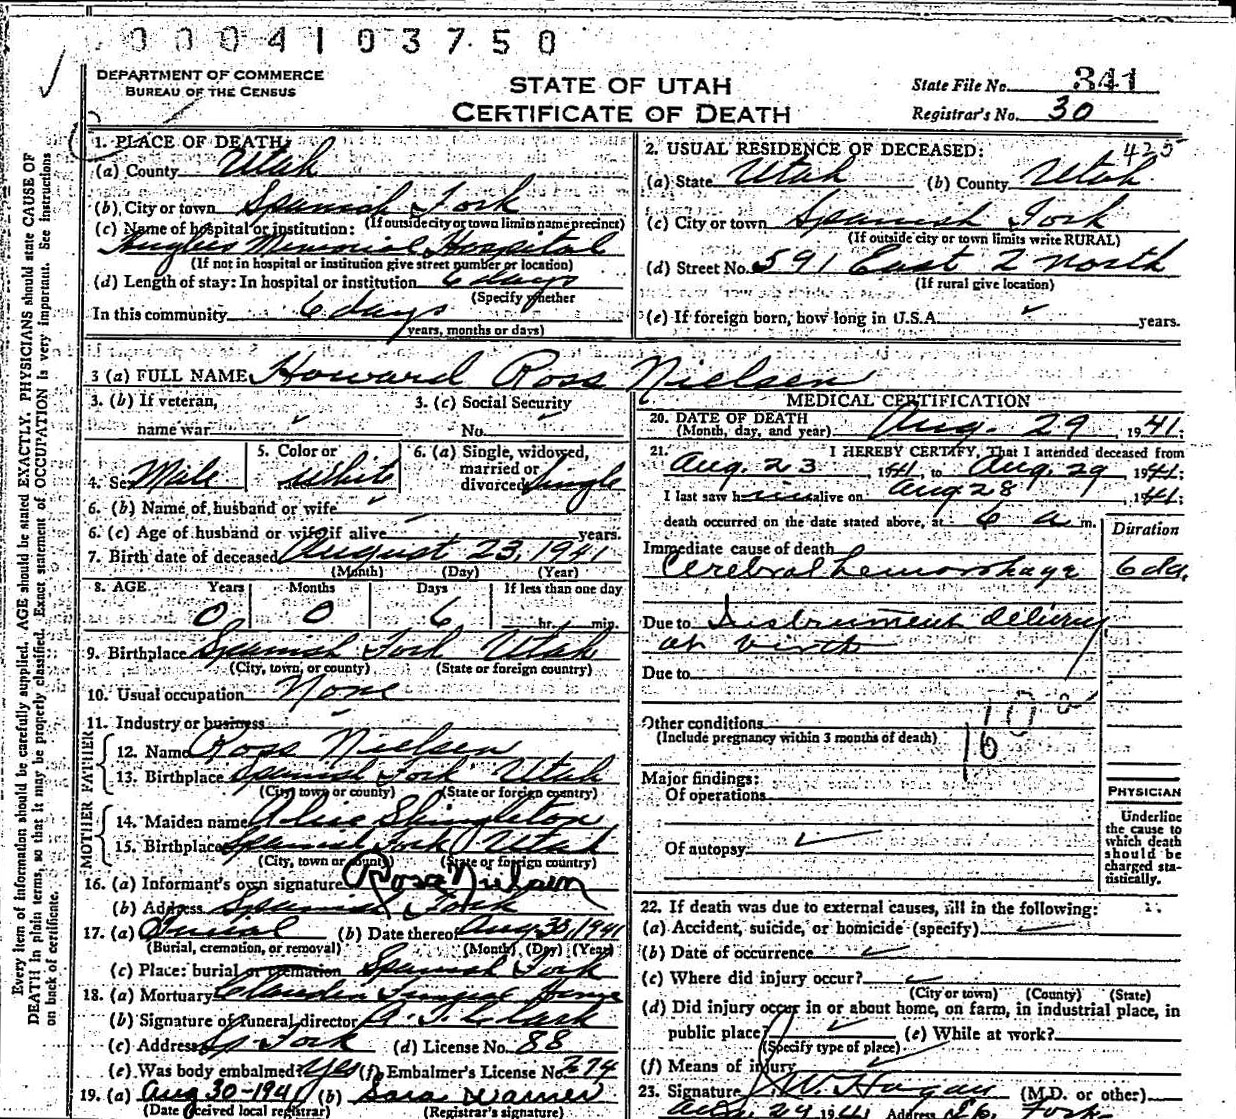 0004103750
DEPARTMENT OF COMMERCE
BUREAU OF THE CENSUS
STATE OF UTAH
CERTIFICATE OF DEATH
State File No. 341
Registrar's No. 30
Every item of information should be carefully supplied. AGE should be stated EXACTLY. PHYSICIANS should state CAUSE OF
DEATH in plain terms, so that it may be properly classified. Exact statement of OCCUPATION is very important. See instructions
on back of certificate.
1. PLACE OF DEATH:
(a) County Utah
(b) City or town Spanish Fork
(If outside city or town limits name precinct)
(c) Name of hospital or institution:
Hughes Memorial Hospital
(If not in hospital or institution give street number or location)
(d) Length of stay: In hospital or institution 6 days
(Specify whether
In this community 6 days
years, months or days)
2. USUAL RESIDENCE OF DECEASED: 425
(a) State Utah (b) County Utah
(c) City or town Spanish Fork
(If outside city or town limits write RURAL)
(d) Street No. 591 East 2 North
(If rural give location)
(e) If foreign born, how long in U.S.A. years.
3 (a) FULL NAME Howard Ross Nielsen
3. (b) If veteran,
name war
3. (c) Social Security
No.
4. Sex Male
5. Color or
race White
6. (a) Single, widowed,
married or
divorced Single
6. (b) Name of husband or wife
6. (c) Age of husband or wife if alive years.
7. Birth date of deceased August 23, 1941
(Month) (Day) (Year)
8. AGE Years Months Days If less than one day
0 0 6 hr. min.
9. Birthplace Spanish Fork Utah
(City, town, or county) (State or foreign country)
10. Usual occupation None
11. Industry or business
FATHER
12. Name Ross Nielsen
13. Birthplace Spanish Fork Utah
(City, town or county) (State or foreign country)
MOTHER
14. Maiden name Alice Shingleton
15. Birthplace Spanish Fork Utah
(City, town or county) (State or foreign country)
16. (a) Informant's own signature Ross Nielsen
(b) Address Spanish Fork
17. (a) Burial (b) Date thereof Aug. 30, 1941
(Burial, cremation, or removal) (Month) (Day) (Year)
(c) Place: burial or cremation Spanish Fork
18. (a) Mortuary Claudin Funeral Home
(b) Signature of funeral director A. T. Clark
(c) Address Sp. Fork (d) License No. 88
(e) Was body embalmed? Yes (f) Embalmer's License No. 274
19. (a) Aug 30-1941 (b) Sara Warner
(Date received local registrar) (Registrar's signature)
MEDICAL CERTIFICATION
20. DATE OF DEATH
(Month, day, and year) Aug. 29, 1941;
21. I HEREBY CERTIFY, That I attended deceased from
Aug. 23 1941 to Aug. 29 1941;
I last saw him alive on Aug 28, 1941;
death occurred on the date stated above, at 6 a m.
Duration
Immediate cause of death
Cerebral hemorrhage 6 da.
Due to Instrument delivery
at birth
Due to
Other conditions
(Include pregnancy within 3 months of death)
Major findings:
Of operations
Of autopsy
PHYSICIAN
Underline
the cause to
which death
should be
charged sta-
tistically.
22. If death was due to external causes, fill in the following:
(a) Accident, suicide, or homicide (specify)
(b) Date of occurrence
(c) Where did injury occur?
(City or town) (County) (State)
(d) Did injury occur in or about home, on farm, in industrial place, in
public place? (e) While at work?
(Specify type of place)
(f) Means of injury
23. Signature J. W. Hagan (M.D. or other)
Aug. 29 1941 Address Sp. Fork